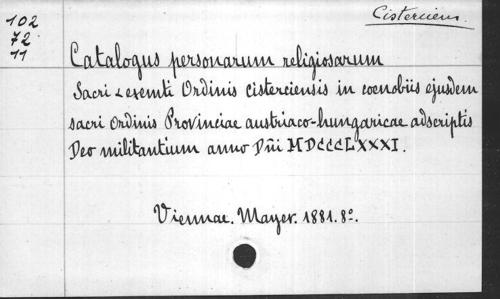 102
72
11
Cisterciens.
Catalogus personarum religiosarum
Sacri & exemti Ordinis cisterciensis in coenobiis ejusdem
sacri Ordinis Provinciae austriaco-hungaricae adscriptis
Deo militantium anno Dñi MDCCCLXXXI.
Viennae. Mayer. 1881. 8º.